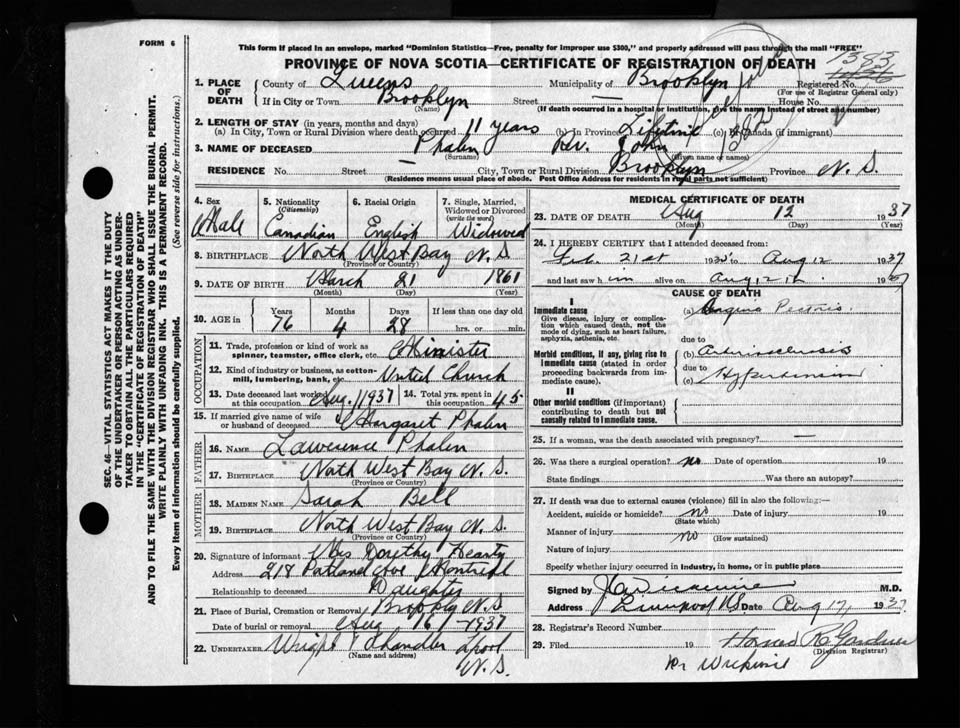 FORM 6
This form if placed in an envelope, marked "Dominion Statistics—Free, penalty for improper use $300," and properly addressed will pass through the mail "FREE"
PROVINCE OF NOVA SCOTIA—CERTIFICATE OF REGISTRATION OF DEATH
1383
1. PLACE OF DEATH County of Queens Municipality of Brooklyn Registered No.
(For use of Registrar General only)
If in City or Town Brooklyn Street — House No.
(Name) (If death occurred in a hospital or institution, give the name instead of street and number)
2. LENGTH OF STAY (in years, months and days)
(a) In City, Town or Rural Division where death occurred 11 years (b) In Province Lifetime (c) In Canada (if immigrant)
3. NAME OF DECEASED Phalen Rev. John
(Surname) (Given name or names)
RESIDENCE No. — Street City, Town or Rural Division Brooklyn Province N. S.
(Residence means usual place of abode. Post Office Address for residents in rural parts not sufficient)
4. Sex 5. Nationality (Citizenship) 6. Racial Origin 7. Single, Married, Widowed or Divorced (write the word)
Male Canadian English Widowed
8. BIRTHPLACE North West Bay N. S.
(Province or Country)
9. DATE OF BIRTH March 21 1861
(Month) (Day) (Year)
10. AGE in Years Months Days If less than one day
76 4 28 hrs. or min.
OCCUPATION
11. Trade, profession or kind of work as spinner, teamster, office clerk, etc. Minister
12. Kind of industry or business, as cotton-mill, lumbering, bank, etc. United Church
13. Date deceased last worked at this occupation Aug. 1 1937 14. Total yrs. spent in this occupation 45
15. If married give name of wife or husband of deceased Margaret Phalen
FATHER
16. NAME Lawerence Phalen
17. BIRTHPLACE North West Bay N. S.
(Province or Country)
MOTHER
18. MAIDEN NAME Sarah Bell
19. BIRTHPLACE North West Bay N. S.
(Province or Country)
20. Signature of informant Mrs Dorothy Hearty
Address 218 Portland Ave Montreal
Relationship to deceased Daughter
21. Place of Burial, Cremation or Removal N.S
Date of burial or removal Aug 16 1937
22. UNDERTAKER Wright & Chandler L'pool
(Name and address) N. S.
MEDICAL CERTIFICATE OF DEATH
23. DATE OF DEATH Aug 12 1937
(Month) (Day) (Year)
24. I HEREBY CERTIFY that I attended deceased from:
Feb. 21st 193 to Aug 12 1937
and last saw him alive on Aug, 12th. 19
CAUSE OF DEATH
I
Immediate cause
Give disease, injury or complication which caused death, not the mode of dying, such as heart failure, asphyxia, asthenia, etc.
(a) Angina Pectoris
due to
Morbid conditions, if any, giving rise to immediate cause (stated in order proceeding backwards from immediate cause).
(b) Arteriosclerosis
due to
(c) Hypertension
II
Other morbid conditions (if important) contributing to death but not causally related to immediate cause.
25. If a woman, was the death associated with pregnancy? —
26. Was there a surgical operation? no Date of operation 19
State findings Was there an autopsy?
27. If death was due to external causes (violence) fill in also the following:—
Accident, suicide or homicide? no Date of injury 19
(State which)
Manner of injury no
(How sustained)
Nature of injury
Specify whether injury occurred in industry, in home, or in public place
Signed by M.D.
Address Liverpool N.S Date Aug 17, 1937
28. Registrar's Record Number
29. Filed 19 R. Gardner
(Division Registrar)
SEC. 46—VITAL STATISTICS ACT MAKES IT THE DUTY
OF THE UNDERTAKER OR PERSON ACTING AS UNDER-
TAKER TO OBTAIN ALL THE PARTICULARS REQUIRED
IN THE "CERTIFICATE OF REGISTRATION OF DEATH"
AND TO FILE THE SAME WITH THE DIVISION REGISTRAR WHO SHALL ISSUE THE BURIAL PERMIT.
WRITE PLAINLY WITH UNFADING INK. THIS IS A PERMANENT RECORD.
Every item of information should be carefully supplied. (See reverse side for instructions.)